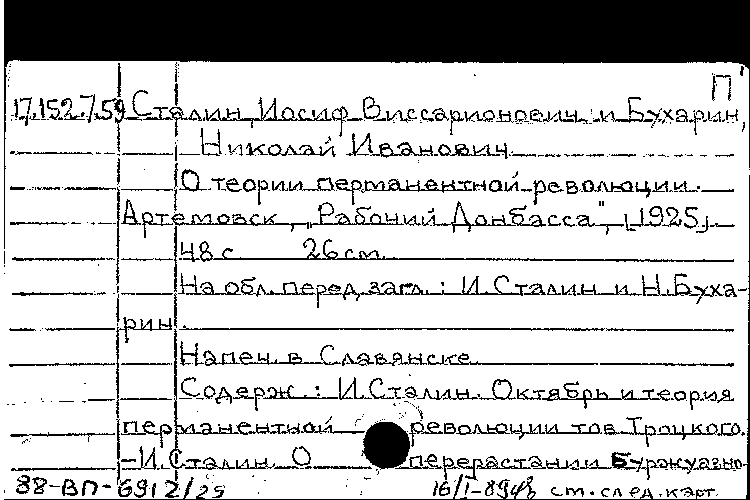 П
17.152.7.59 Сталин, Иосиф Виссарионович и Бухарин,
Николай Иванович.
О теории перманентной революции.
Артемовск, "Рабочий Донбасса", [1925].
48 с. 26 см.
На обл. перед загл.: И. Сталин и Н. Буха-
рин.
Напеч. в Славянске.
Содерж.: И. Сталин. Октябрь и теория
перманентной революции тов. Троцкого.
-И. Сталин. О перерастании буржуазно-
88-ВП-6912/29 см. след. карт.